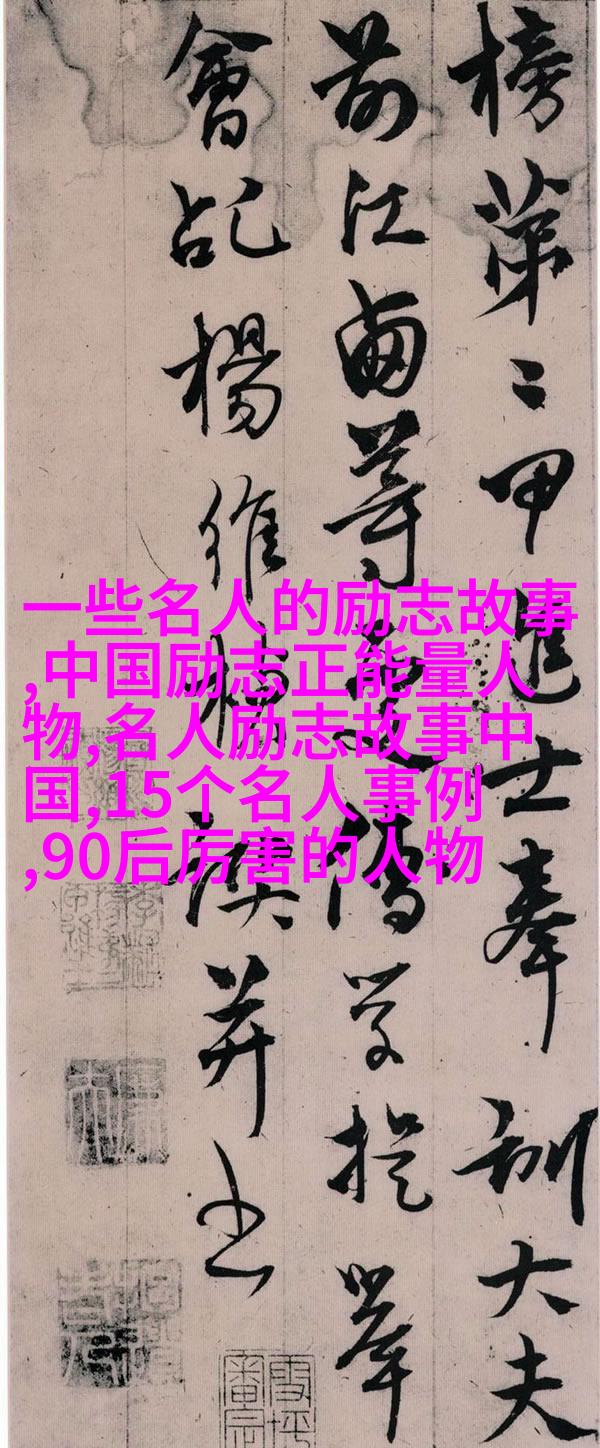 榜第二甲進士奉訓大夫
前江西等處儒學提舉
會記楊維楨譔并書
一些名人的励志故事
,中国励志正能量人
物,名人励志故事中
国,15个名人事例
,90后厉害的人物